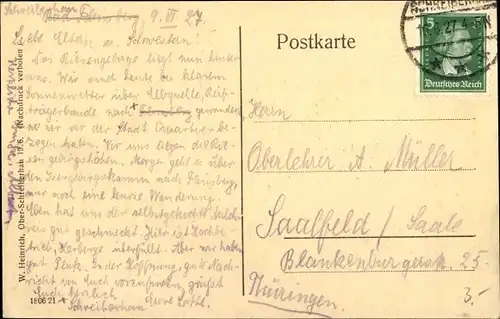 Schreiberhau
Bad Flinsberg, 9. VII 27.
Liebe Eltern u. Schwestern!
Das Riesengebirge liegt nun hinter
uns. Wir sind heute bei klarem
Sonnenwetter über Elbquelle, Reif-
trägerbaude nach Flinsberg gewandert
wo wir vor der Stadt Quartier be-
zogen haben. Vor uns liegen die
Morgen geht es über
den Isergebirgskamm nach Flinsberg,
nur noch eine kurze Wanderung.
Eben hat uns der selbstgekochte
gut geschmeckt. Hier ist Hochbe-
trieb, Herberge überfüllt. Aber wir haben
gut Platz. In der Hoffnung, gute Nach-
richt von Euch vorzufinden, grüßt
Euch herzlich
Eure Lotte.
Schreiberhau
W. Heinrich, Ober-Schreiberhau 1926. (Nachdruck verboten.)
1806 21
Postkarte
SCHREIBERHAU
5
Deutsches Reich
Herrn
Oberlehrer A. Müller
Saalfeld / Saale
Blankenburgerstr. 25
Thüringen.
3.-